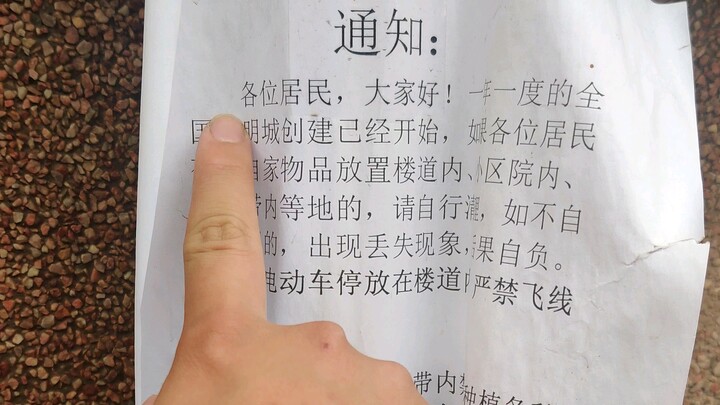 通知:
各位居民，大家好！一年一度的全
国 明城创建已经开始，如果各位居民
自家物品放置楼道内、小区院内、
带内等地的，请自行清理，如不自
的，出现丢失现象，后果自负。
电动车停放在楼道内严禁飞线
带内 种植